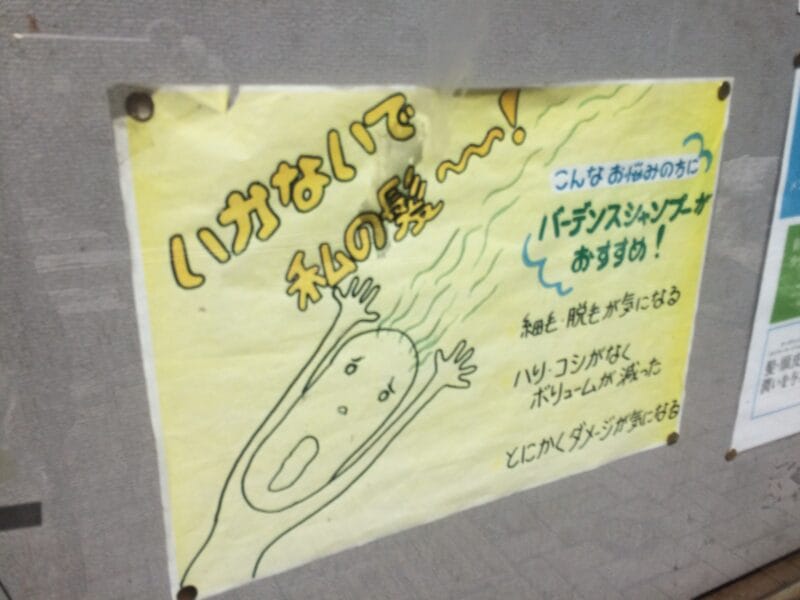 いかないで
私の髪〜〜!
こんなお悩みの方に
バーデンスシャンプーが
おすすめ!
細毛・脱毛が気になる
ハリ・コシがなく
ボリュームが減った
とにかくダメージが気になる